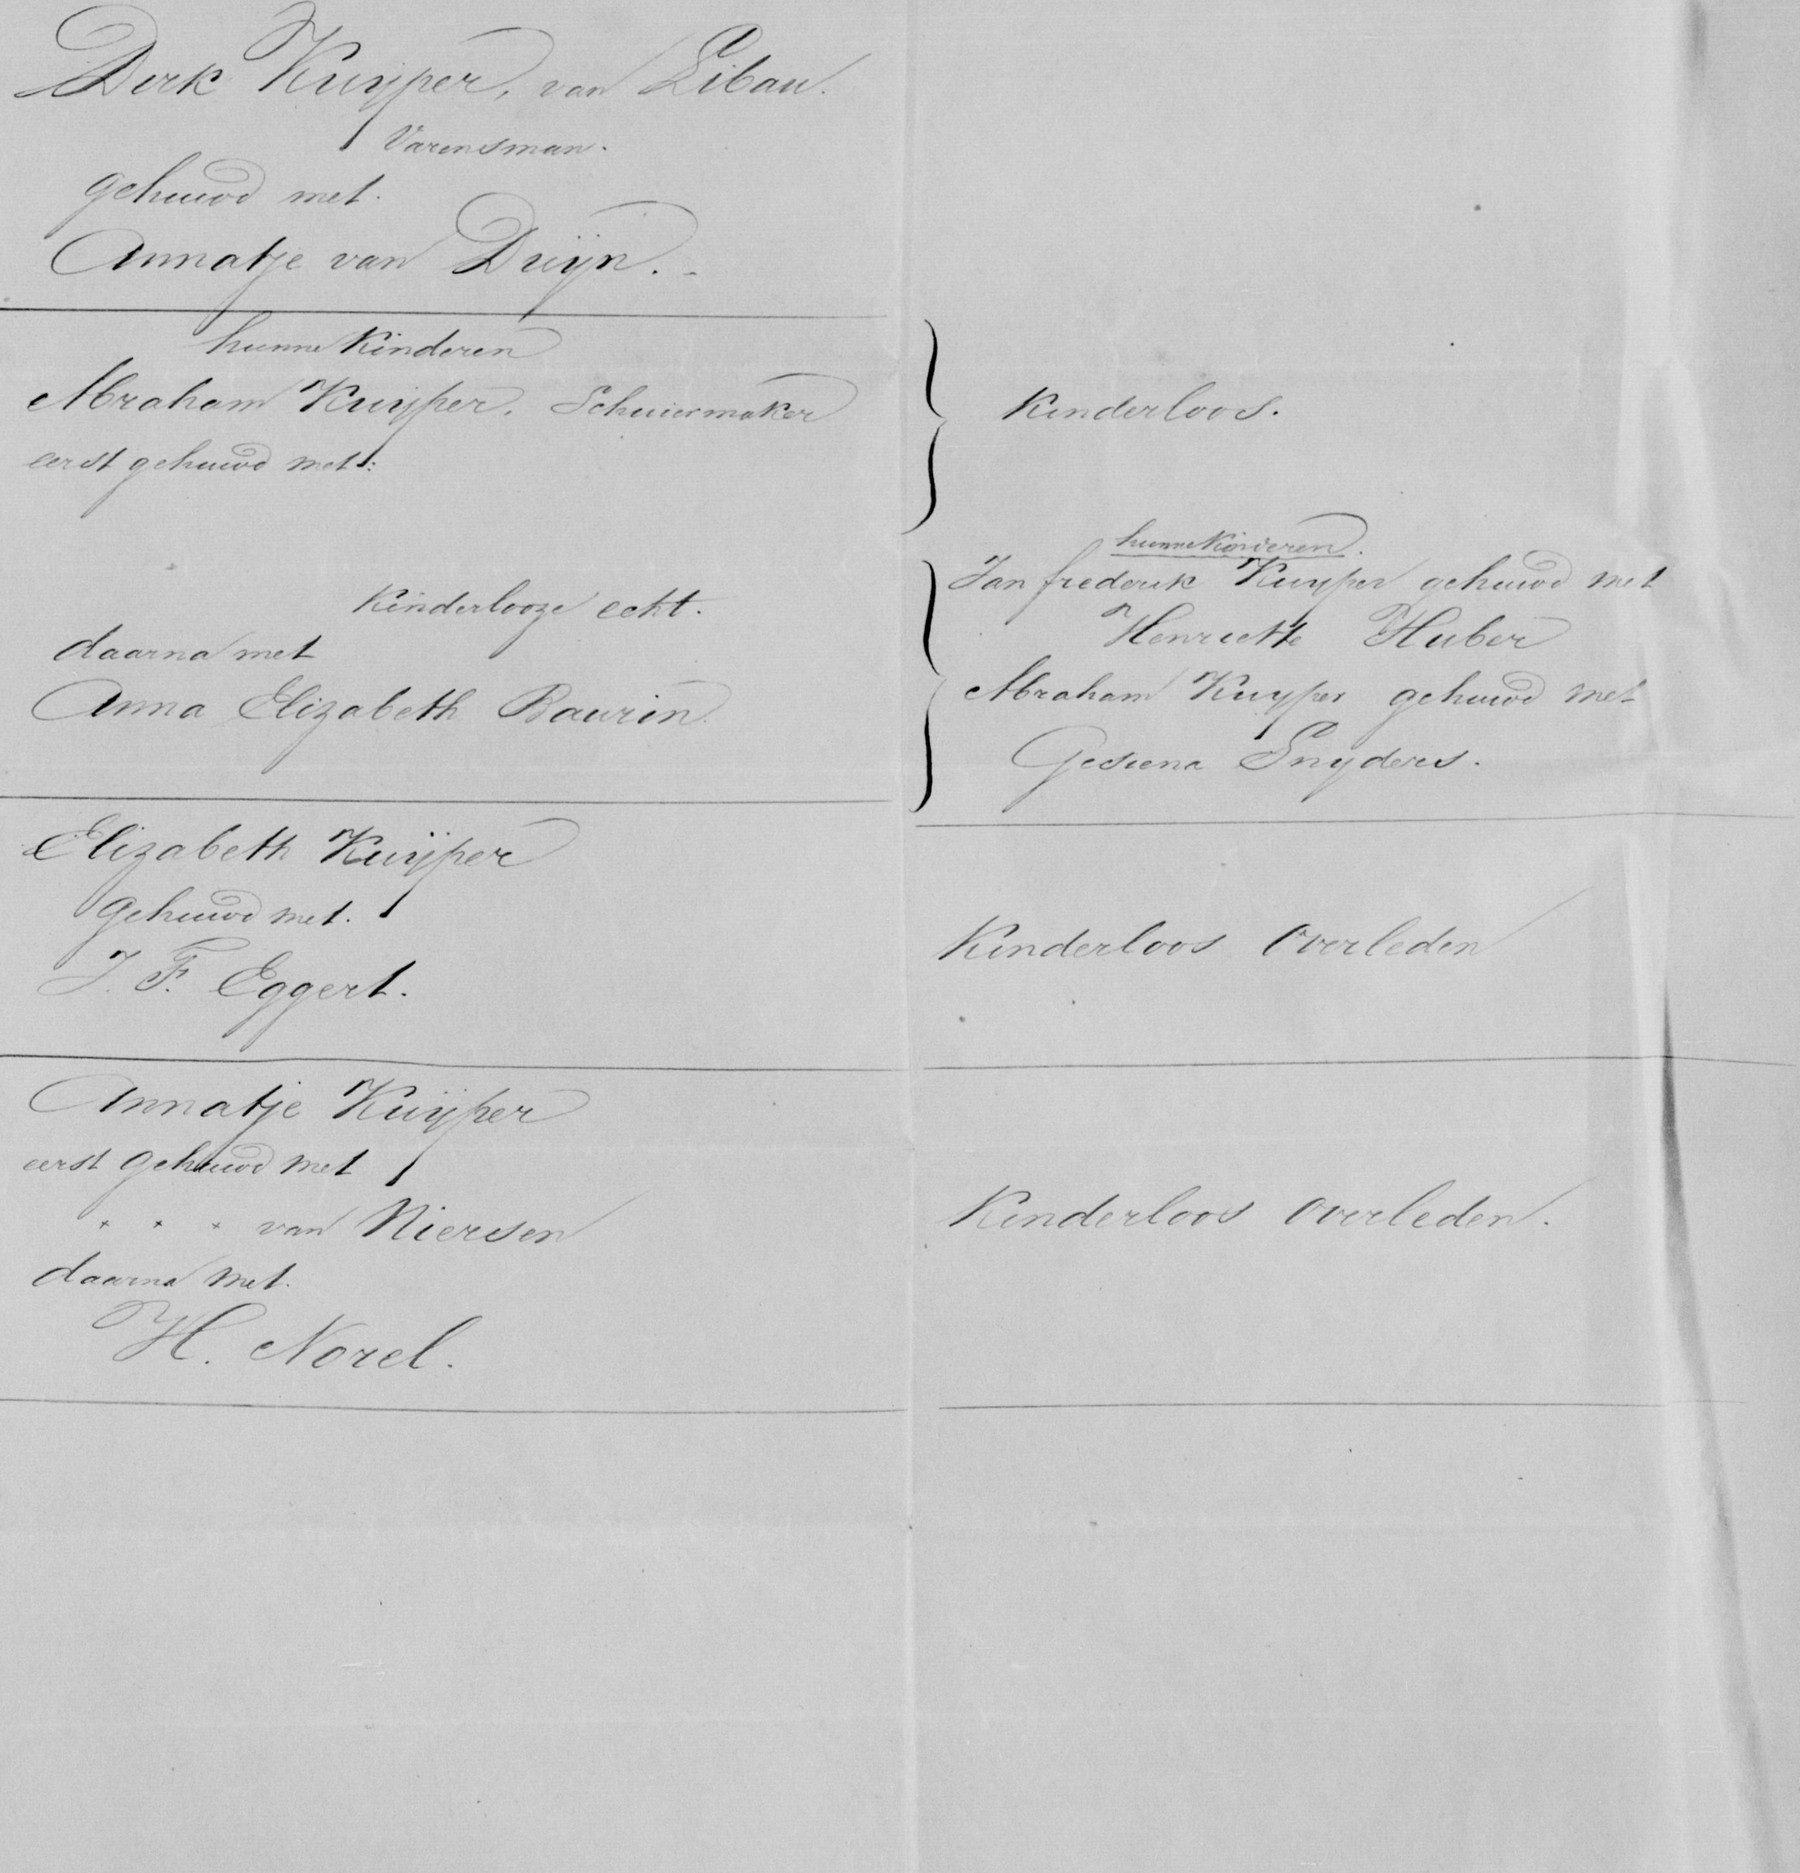 Dirk Kuyper, van Libau.
Varensman.
gehuwd met.
Annatje van Duijn.
hunne Kinderen
Abraham Kuijper. Schuiermaker
eerst gehuwd met:
Kinderlooze echt.
daarna met
Anna Elizabeth Baurin
Kinderloos.
hunne Kinderen.
Jan frederik Kuyper gehuwd met
Henriette Huber
Abraham Kuyper gehuwd met
Gesiena Snyders.
Elizabeth Kuijper
gehuwd met.
J. F. Eggert.
Kinderloos Overleden
Annatje Kuijper
eerst gehuwd met
× × × van Niersen
daarna met.
H. Norel.
Kinderloos overleden.